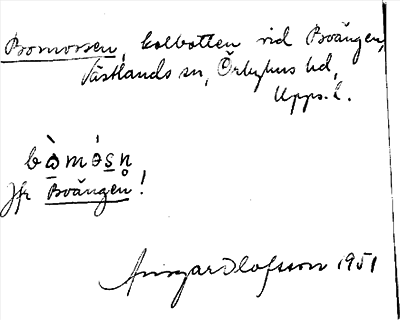 Bomossen, kolbotten vid Boängen,
Västlands sn, Örbyhus hd,
Upps. l.
bò̱məs̱n̥
Jfr Boängen!
Ansgar Olofsson 1951